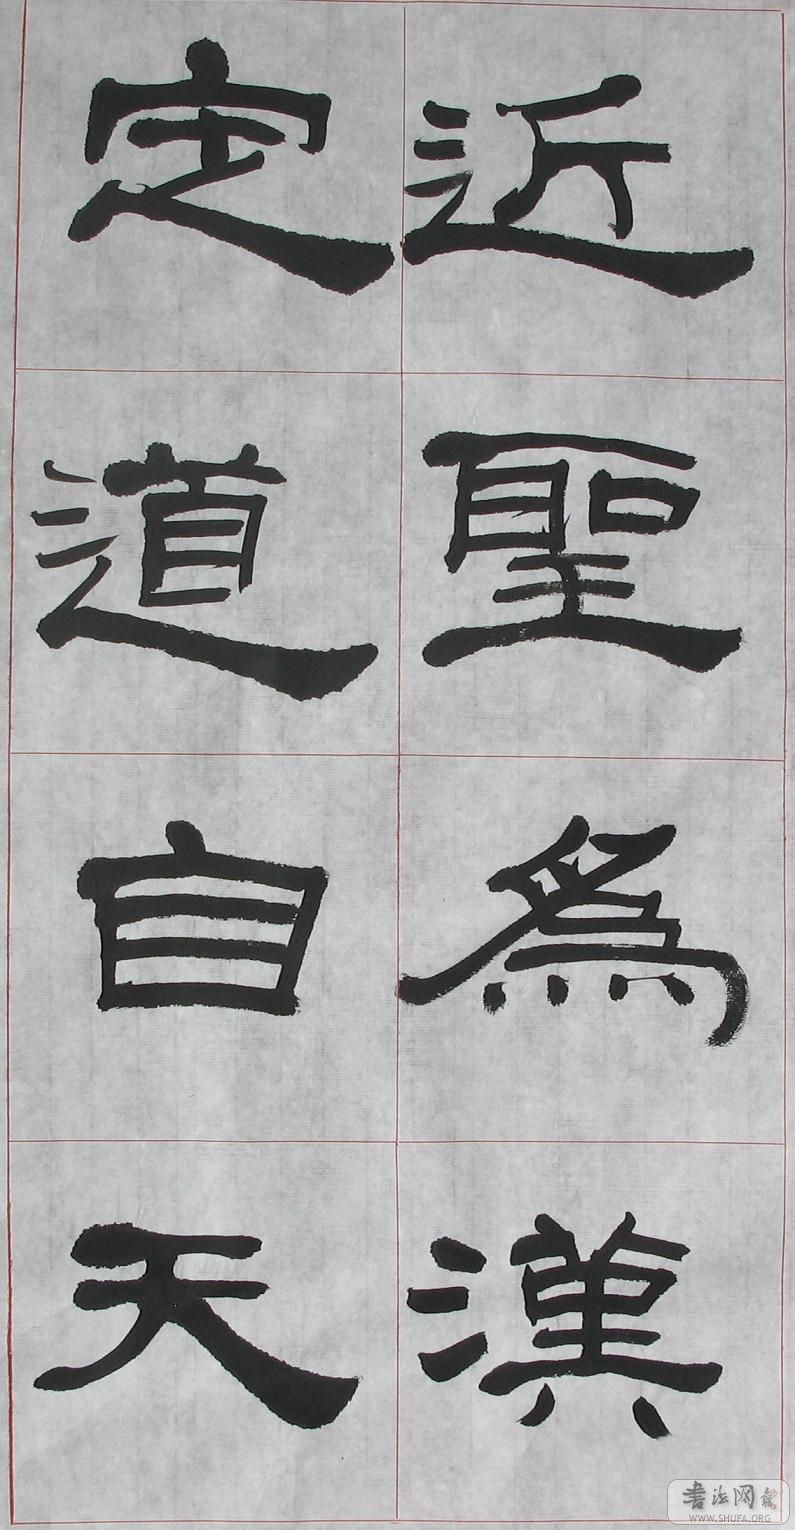 近聖為漢
定道自天
书法网
WWW.SHUFA.ORG